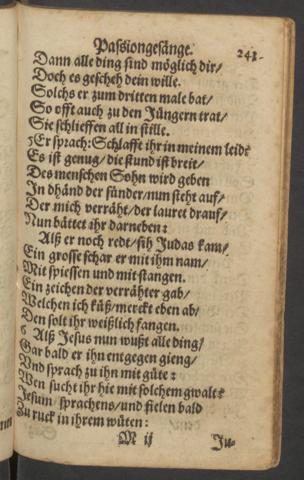 Passiongesänge. 241.
Dann alle ding sind möglich dir/
Doch es gescheh dein wille.
Solchs er zum dritten male bat/
So offt auch zu den Jüngern trat/
Sie schlieffen all in stille.
5 Er sprach: Schlafft ihr in meinem leids
Es ist genug/ die stund ist breit/
Des menschen Sohn wird geben
In dhänd der sünder/ nun steht auf/
Der mich verräht/ der lauret drauf/
Nun bättet ihr darneben:
Alß er noch redt/ sih Judas kam/
Ein grosse schar er mit ihm nam/
Mit spiessen und mit stangen.
Ein zeichen der verrähter gab/
Welchen ich küß/ merckt eben ab/
Den solt ihr weißlich fangen.
6 Alß Jesus nun wußt alle ding/
Gar bald er ihn entgegen gieng/
Vnd sprach zu ihn mit güte:
Wen sucht ihr hie mit solchem gwalt?
Jesum/ sprachens/ und fielen bald
Zu ruck in ihrem wüten:
M ij Ju-